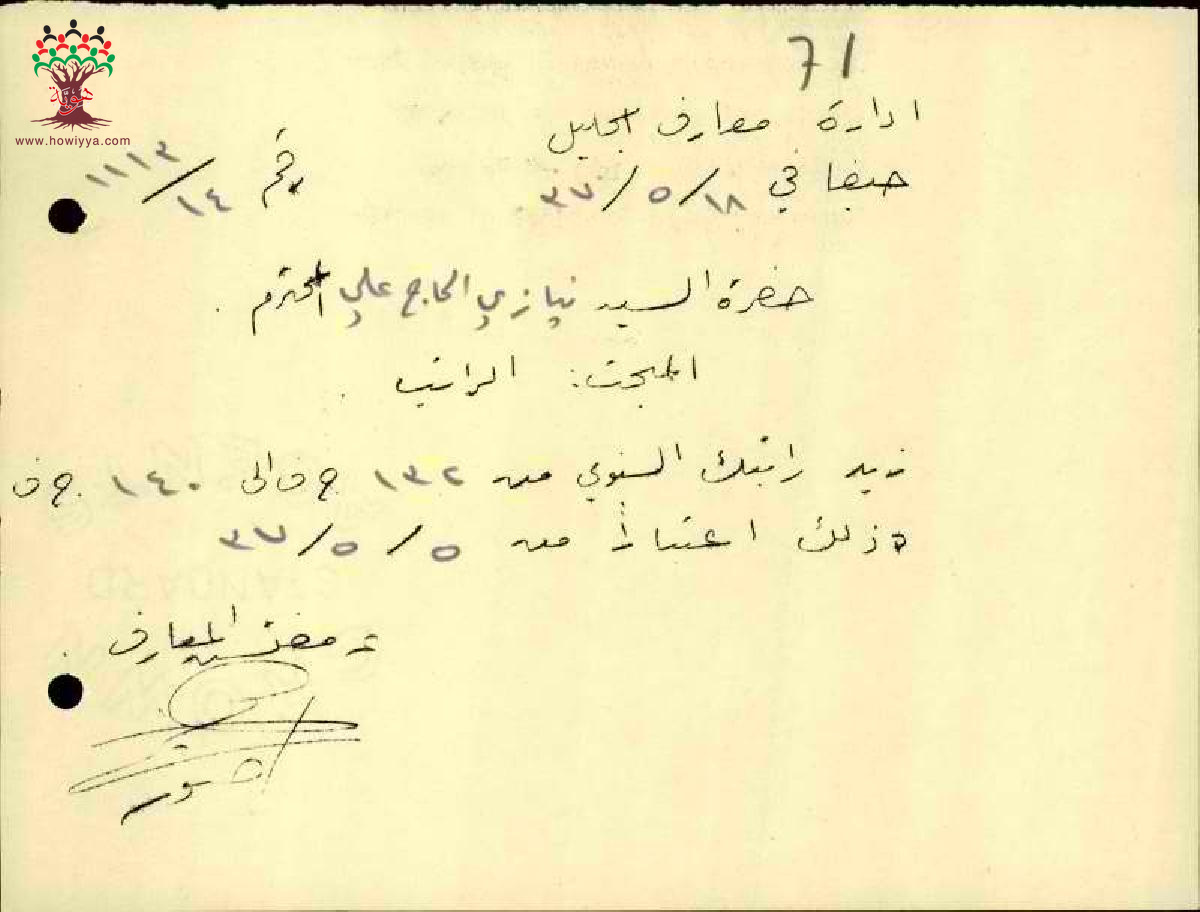 71
ادارة معارف الجليل
حيفا في ١٨/٥/٣٧ رقم ١١١٣/١٤
حضرة السيد نيازي الحاج علي المحترم .
المبحث: الراتب .
زيد راتبك السنوي من ١٣٢ ج ف الى ١٤٠ ج ف
وذلك اعتباراً من ٥/٥/٣٧
مفتش المعارف .
هوية
www.howiyya.com